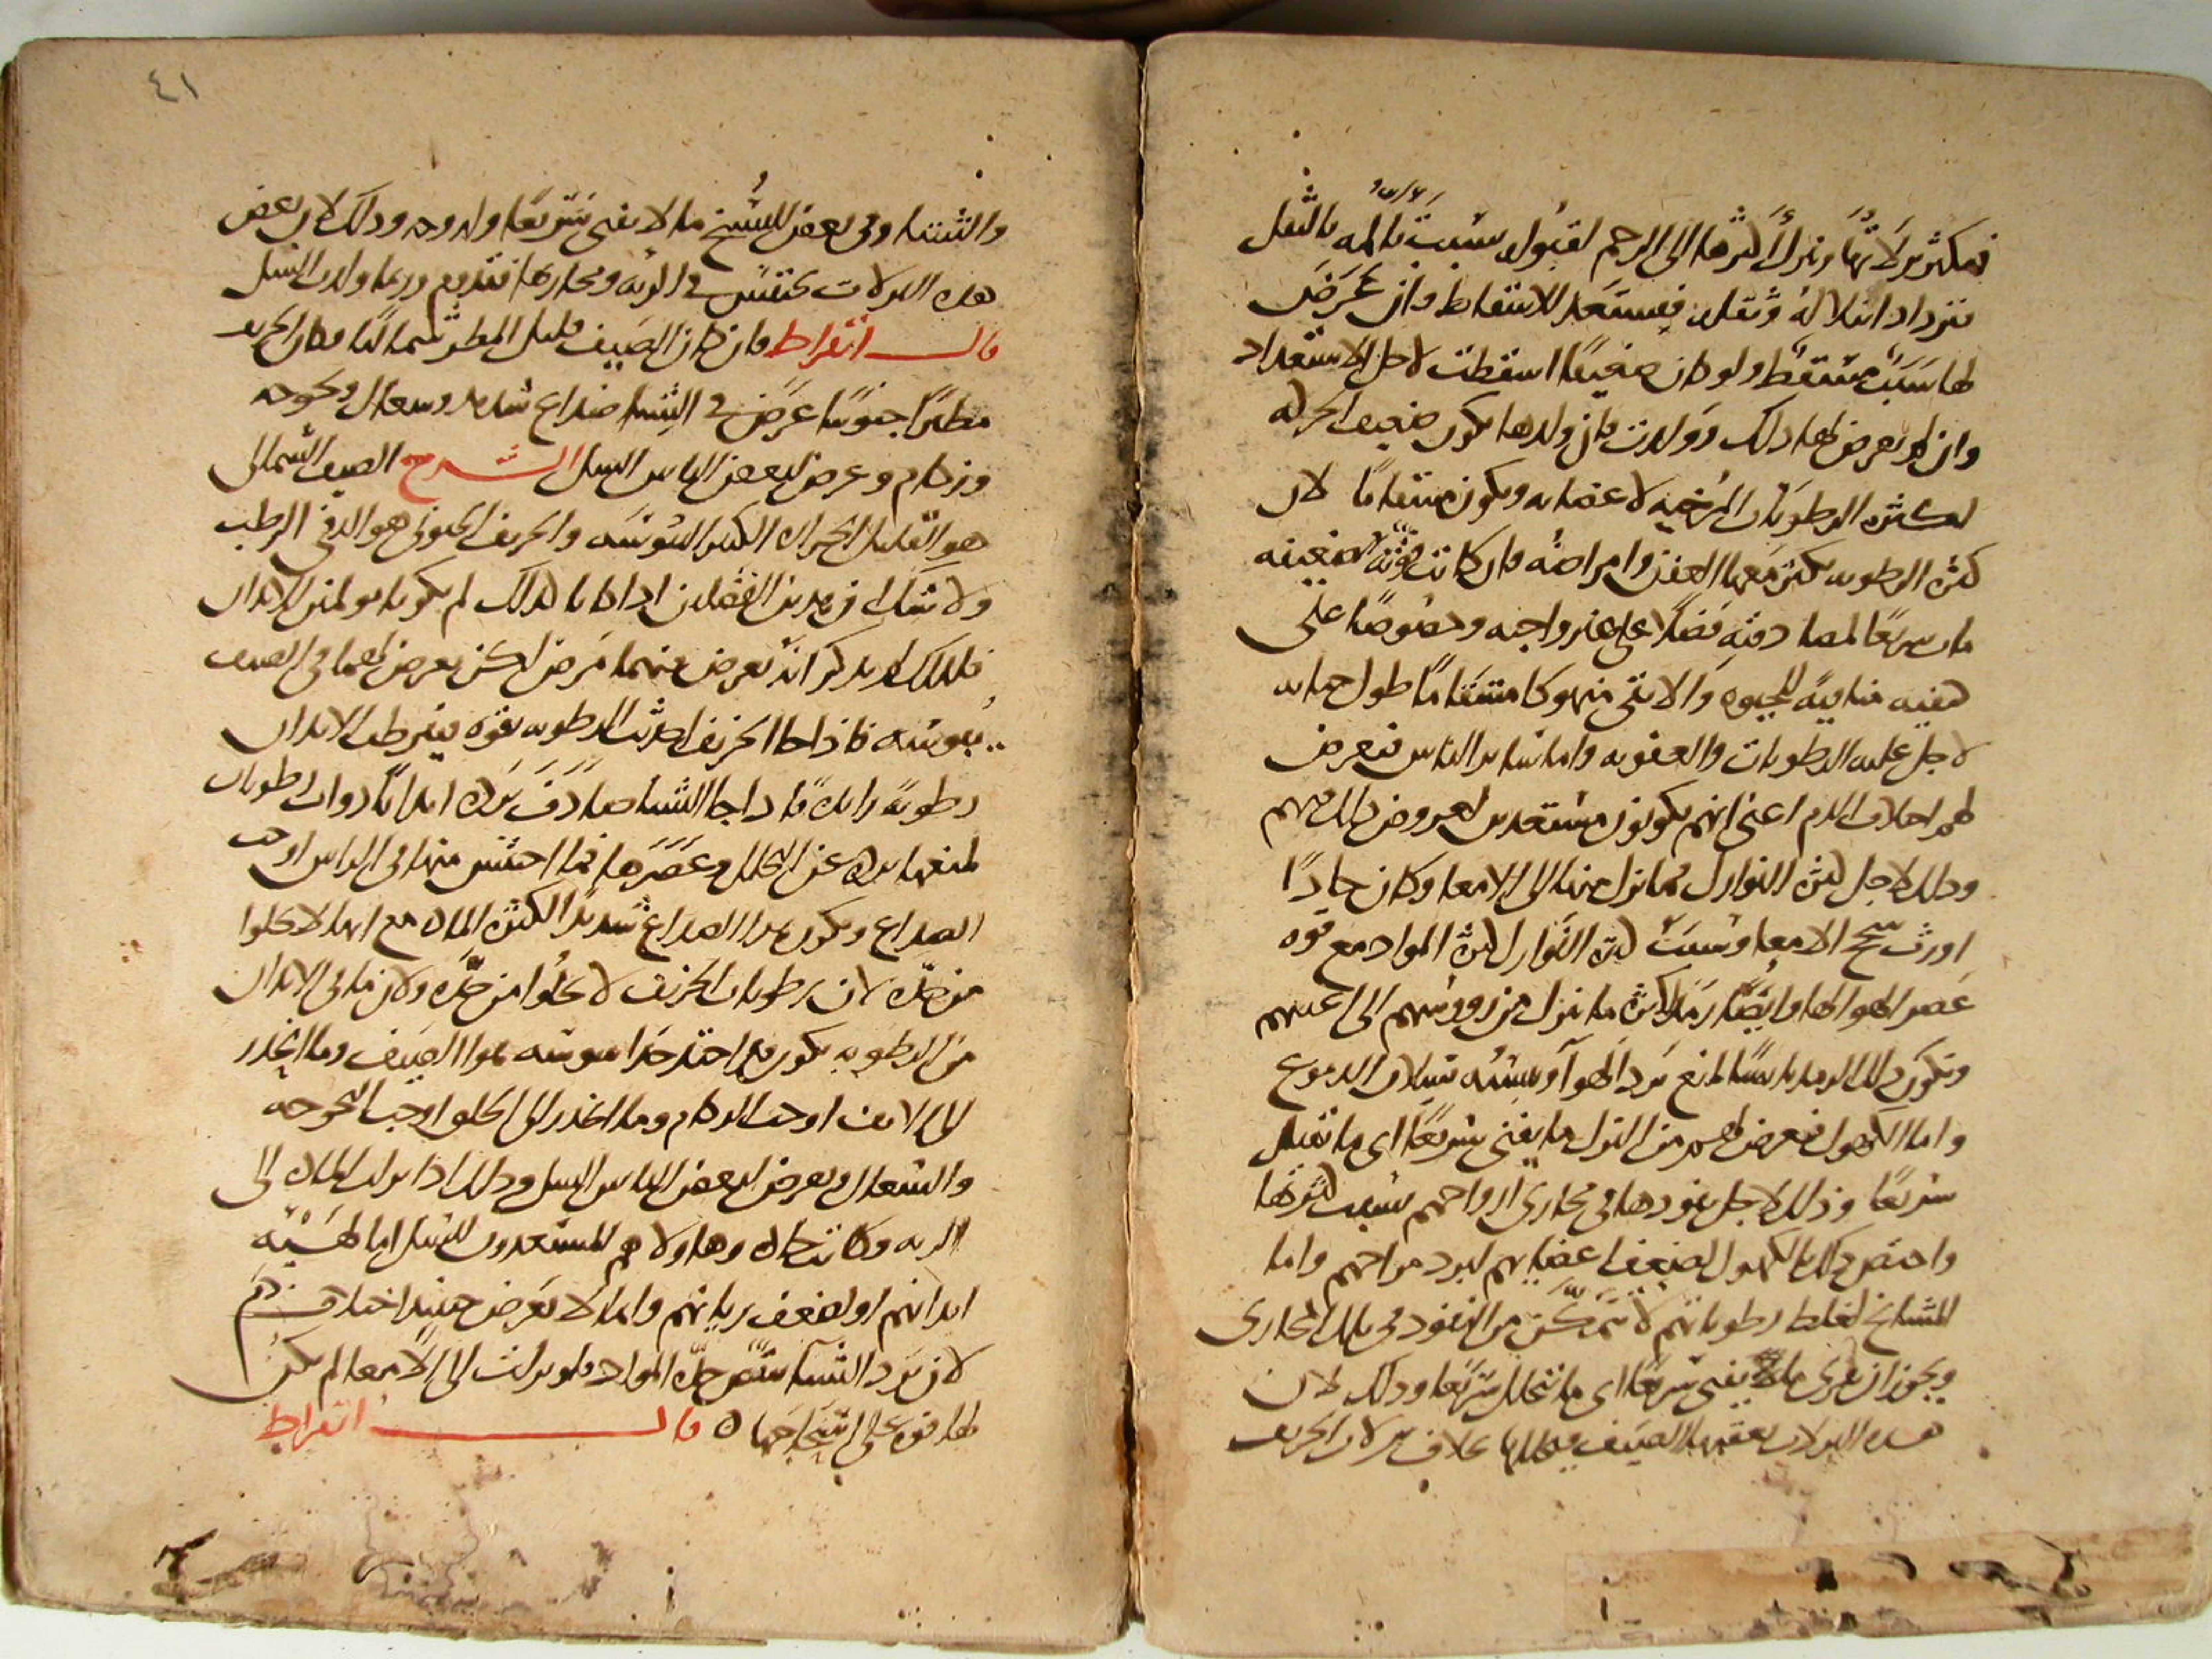 فتكثر نزلاتها ونزل أكثرها الى الرحم لقبوله بسبب تألمه بالثقل
فيزداد ابتلاله وثقله فيستعد للاسقاط وان عرض
لها سبب مسقط ولو كان ضعيفا اسقطت لاجل الاستعداد
وان لم يعرض لها ذلك وولدت فان ولدها يكون ضعيف الحركة
لكثرة الرطوبات المرخية لاعضائه ويكون مسقاما لان
كثرة الرطوبة يكثر معها العفن وامراضه فان كانت قوته ضعيفة
مات سريعا لمصادفته فضلا على غير واجبه وخصوصا على
كيفية منافية للحيوة والا بقى منهوكا مسقاما طول حياته
لاجل غلبة الرطوبات والعفونة واما سائر الناس فيعرض
لهم اختلاف الدم اعنى انهم يكونون مستعدين لعروض ذلك لهم
وذلك لاجل كثرة النوازل فما نزل منها الى الامعا وكان حادا
اورث سحج الامعا وسبب كثرة النوازل كثرة المواد مع قوة
عصر الهوا لها وايضا رمد لكثرة ما ينزل من رووسهم الى اعينهم
ويكون ذلك الرمد يابسا لمنع برد الهوآ ويبسه سيلان الدموع
واما الكهول فيعرض لهم من النزل ما يفنى سريعا اى ما يقتل
سريعا وذلك لاجل نفوذها فى مجارى ارواحهم بسبب كثرتها
واختص ذلك بالكهول لضعف اعضايهم لبرد مزاجهم واما
المشايخ لغلظ رطوباتهم لا تتمكن من النفوذ فى تلك المجارى
ويجوز ان يقرى ما يفنى سريعا اى ما يتحلل سريعا وذلك لان
هذه النزلات يعقبها الصيف فيحللها بخلاف نزلات الخريف
٤١
والشتا وفى بعض النسخ ما لا يفنى سريعا وله وجه وذلك لان بعض
هذه النزلات تحتبس فى الرئة ومجاريها فتدوم وربما ولدت السل
قال ابقراط فان كان الصيف قليل المطر شماليا وكان الخريف
مطيرا جنوبيا عرض فى الشتا صداع شديد وسعال وبحوحة
وزكام وعرض لبعض الناس السل الشرح الصيف الشمالى
هو القليل الحرارة الكثير اليبوسة والخريف الجنوبى هو الدفى الرطب
ولا شك ان هذين الفصلين اذا كانا كذلك لم يكونا مولمين للابدان
فلذلك لم يذكر انه يعرض عنهما مرض لكن يعرض لهما فى الصيف
يبوسة فاذا جا الخريف احدث الرطوبة بقوة فيرطب الابدان
رطوبة زايدة فاذا جا الشتا صادف برده ابدانا ذوات رطوبات
لمنعها برده عن التحلل وعصرها فما احتبس منها فى الراس اوجب
الصداع ويكون هذا الصداع شديدا لكثرة المادة مع انها لا تخلوا
من حدة لان رطوبات الخريف لا تخلوا من حدة ولان ما فى الابدان
من الرطوبة يكون قد احتد جدا بيبوسة هوا الصيف وما انحدر
الى الانف اوجب الزكام وما انحدر الى الحلق اوجب البحوحة
والسعال ويعرض لبعض الناس السل وذلك اذا نزلت المادة الى
الرية وكانت حادة وهاولاهم المستعدون للسل اما لهيئة
ابدانهم او لضعف رياتهم وانما لا يعرض حينئذ اختلاف دم
لان برد الشتا يكسر حدة المواد فلو نزلت الى الامعا لم يكن
لها قوة على اسحاجها ه قال ابقراط